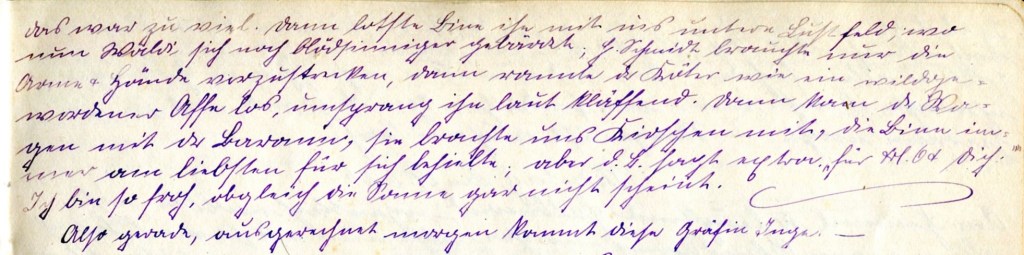 das war zu viel. Dann lotste Bine ihn mit ins untere Lustfeld, wo
nun Wäldi sich noch blödsinniger gebärdet; J. Schmidt brauchte nur die
Arme & Hände vorzustrecken, dann rannte dr Köter wie ein wildge-
wordener Affe los, umsprang ihn laut kläffend. Dann kam dr Wa-
gen mit dr Baronin, sie brachte uns Kirschen mit, die Bine im-
mer am liebsten für sich behielte; aber d. B. sagt extra „für Kl. & Dich."
Ich bin so froh, obgleich die Sonne gar nicht scheint.
Also gerade, ausgerechnet morgen kommt diese Gräfin Inge. —